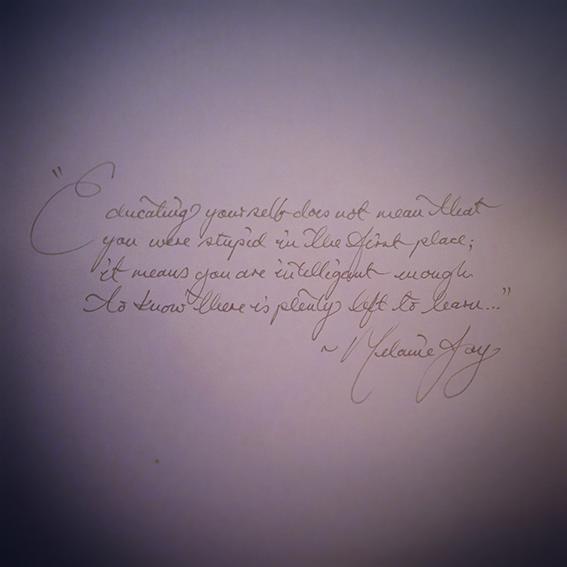 "Educating yourself does not mean that
you were stupid in the first place;
it means you are intelligant enough
to know there is plenty left to learn..."
~ Melanie Joy